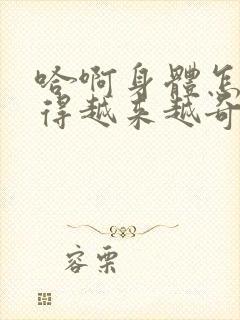 哈啊身體怎
得越来越奇
容栗